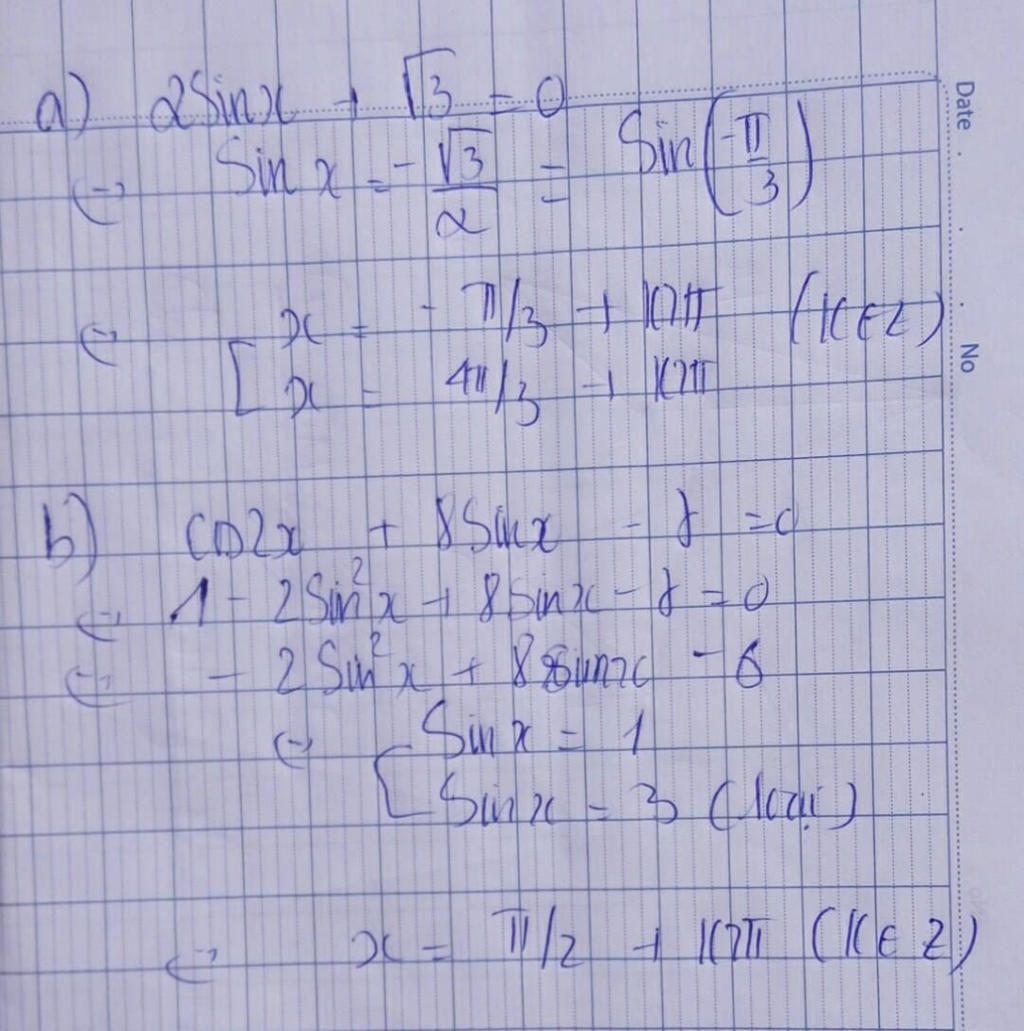 a) 2Sinx + √3 = 0
⇔ Sin x = -√3/2 = Sin(-π/3)
⇔ [ x = -π/3 + k2π (k∈Z)
x = 4π/3 + k2π
b) cos2x + 8Sinx - 7 = 0
⇔ 1 - 2Sin²x + 8Sinx - 7 = 0
⇔ - 2Sin²x + 8sinx - 6
⇔ [ Sin x = 1
Sinx = 3 (loại)
⇔ x = π/2 + k2π (k∈Z)
Date
No